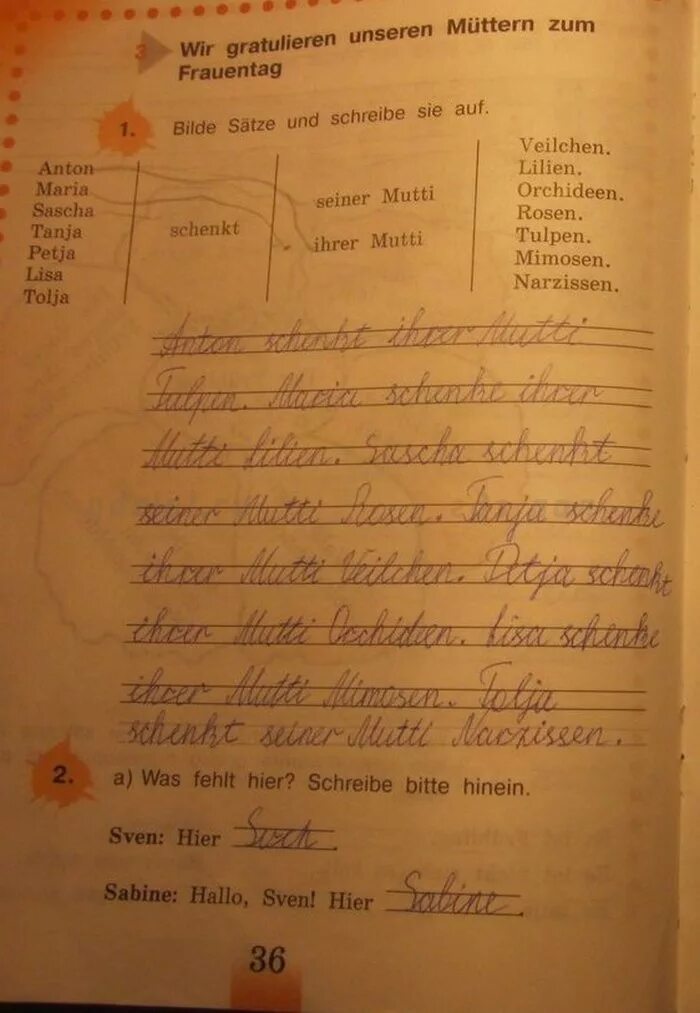 3 Wir gratulieren unseren Müttern zum
Frauentag
1. Bilde Sätze und schreibe sie auf.
Anton
Maria
Sascha
Tanja
Petja
Lisa
Tolja
schenkt
seiner Mutti
ihrer Mutti
Veilchen.
Lilien.
Orchideen.
Rosen.
Tulpen.
Mimosen.
Narzissen.
Anton schenkt ihrer Mutti
Tulpen. Maria schenke ihrer
Mutti Lilien. Sascha schenkt
seiner Mutti Rosen. Tanja schenke
ihrer Mutti Veilchen. Petja schenkt
ihrer Mutti Orchideen. Lisa schenke
ihrer Mutti Mimosen. Tolja
schenkt seiner Mutti Narzissen.
2. a) Was fehlt hier? Schreibe bitte hinein.
Sven: Hier
Sabine: Hallo, Sven! Hier Sabine.
36